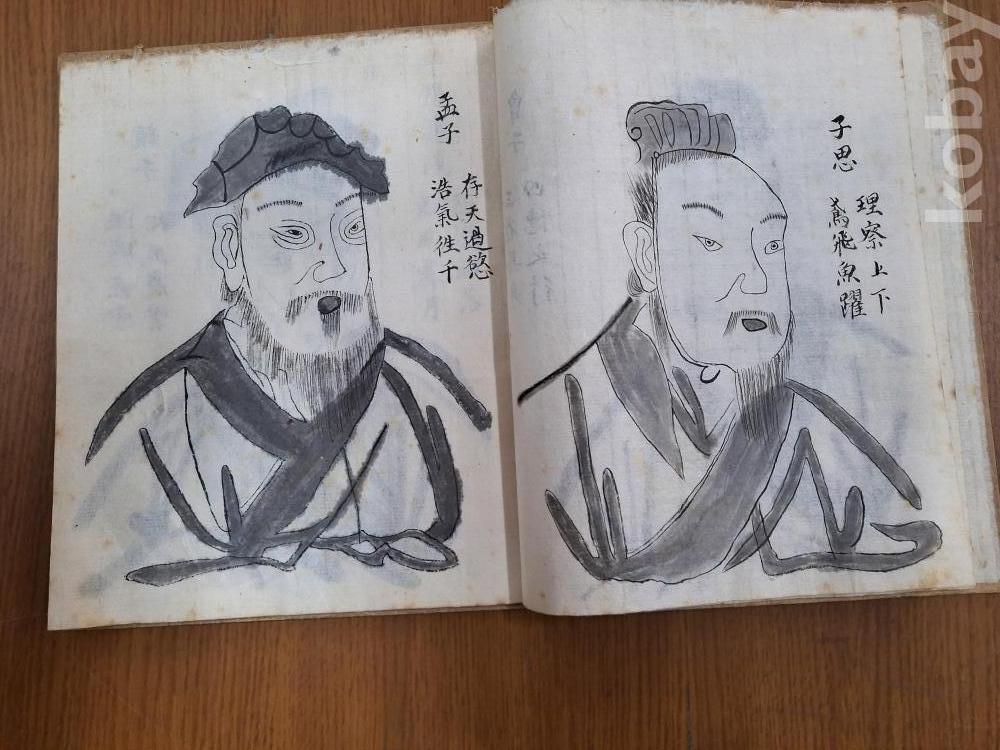 子思
理察上下
鳶飛魚躍
孟子
存天過慾
浩氣徃千
kobay